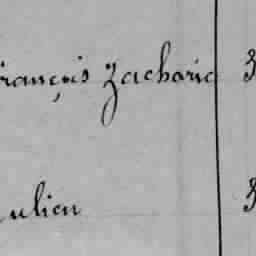 rançois Zacharie 3
ulien 3